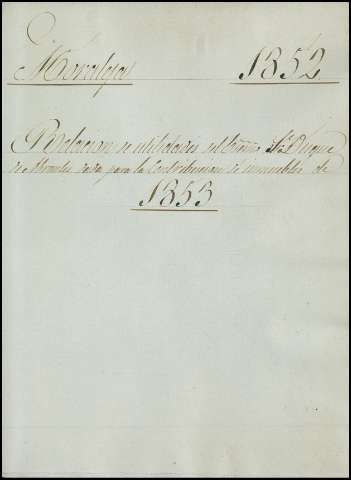 Moraleja 1852
Relacion de utilidades del Exmo. Sr. Duque
de Abrantes dada para la Contribucion de inmuebles de
1853